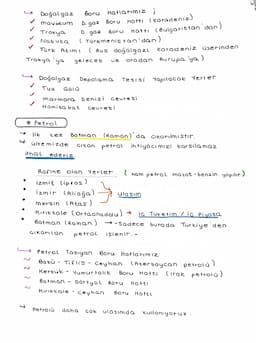 ↳ Doğalgaz Boru Hatlarımız ;
✓ Mavikum D.gaz Boru Hattı (Karadeniz)
✓ Trakya D.gaz Boru Hattı (Bulgaristan'dan)
✓ Nabusa (Türkmenistan'dan)
✓ Türk Akımı (Rus doğalgazı Karadeniz üzerinden
Trakya'ya gelecek ve oradan Avrupa'ya)
↳ Doğalgaz Depolama Tesisi Yapılacak Yerler
✓ Tuz Gölü
✓ Marmara Denizi Çevresi
✓ Hamitabat Çevresi
* Petrol
→ İlk kez Batman (Raman)'da çıkarılmıştır.
→ Ülkemizde çıkan petrol ihtiyacımızı karşılamaz
ithal ederiz
Rafine olan Yerler (ham petrol mazot-benzin yapar)
• İzmit (İpraş)
• İzmir (Aliağa) → Ulaşım
• Mersin (Ataş)
• Kırıkkale (Ortaanadolu) → İç Tüketim / İç Piyasa
• Batman (Raman) → Sadece burada Türkiye'den
çıkarılan petrol işlenir.
↳ Petrol Taşıyan Boru Hatlarımız
~ Bakü - Tiflis - Ceyhan (Azerbaycan petrolü)
~ Kerkük - Yumurtalık Boru Hattı (Irak petrolü)
~ Batman - Dörtyol Boru Hattı
~ Kırıkkale - Ceyhan Boru Hattı
↳ Petrolü daha çok ulaşımda kullanıyoruz.